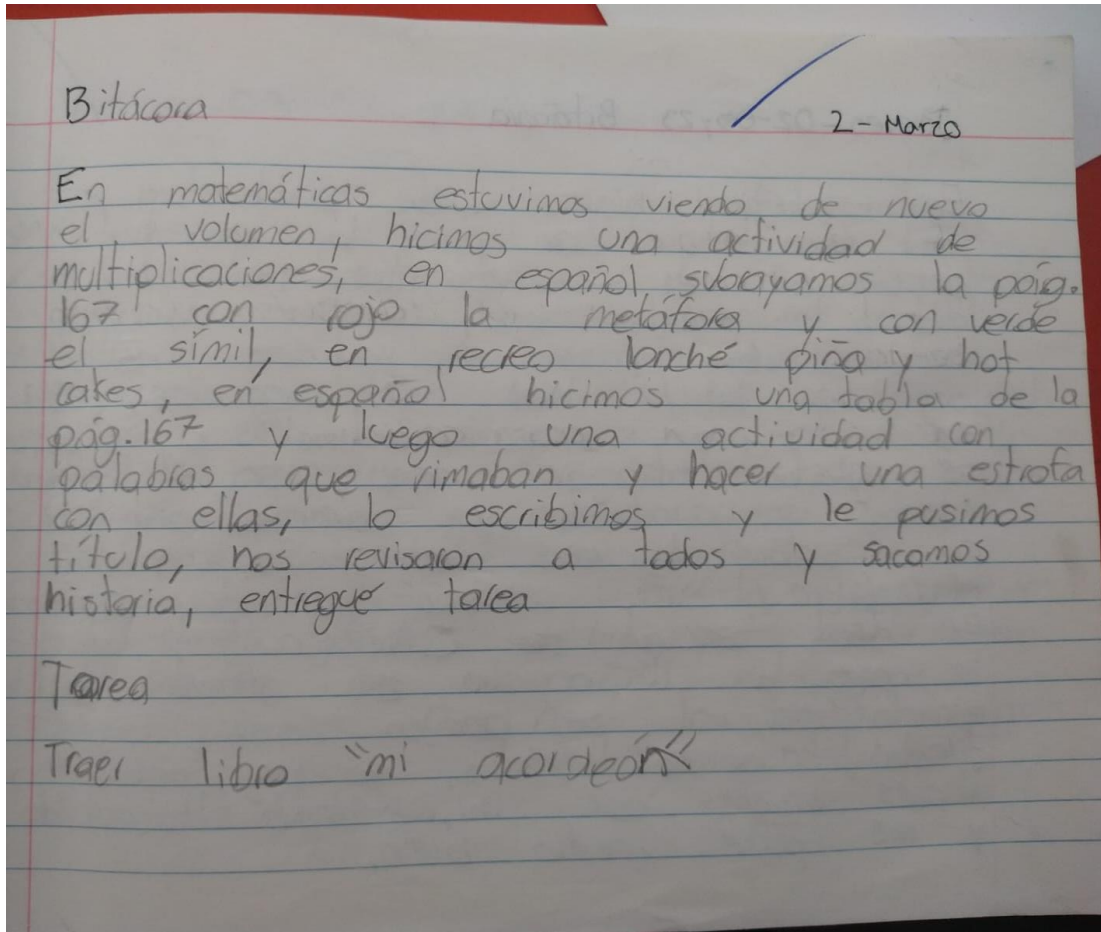 Bitácora
2 - Marzo
En matemáticas estuvimos viendo de nuevo
el volumen, hicimos una actividad de
multiplicaciones, en español subayamos la pág.
167 con rojo la metáfora y con verde
el símil, en recreo lonché piña y hot
cakes, en español hicimos una tabla de la
pág. 167 y luego una actividad con
palabras que rimaban y hacer una estrofa
con ellas, lo escribimos y le pusimos
título, nos revisaron a todos y sacamos
historia, entregué tarea
Tarea
Traer libro "mi acordeón"